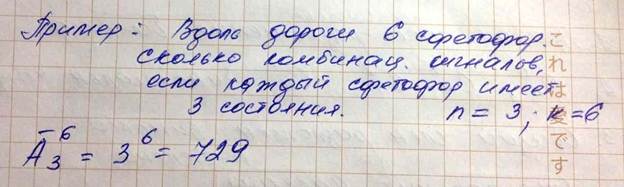 Пример: Вдоль дороги 6 светофор.
сколько комбинац. сигналов,
если каждый светофор имеет
3 состояния. n = 3; к = 6
Ā₃⁶ = 3⁶ = 729
これは愛です